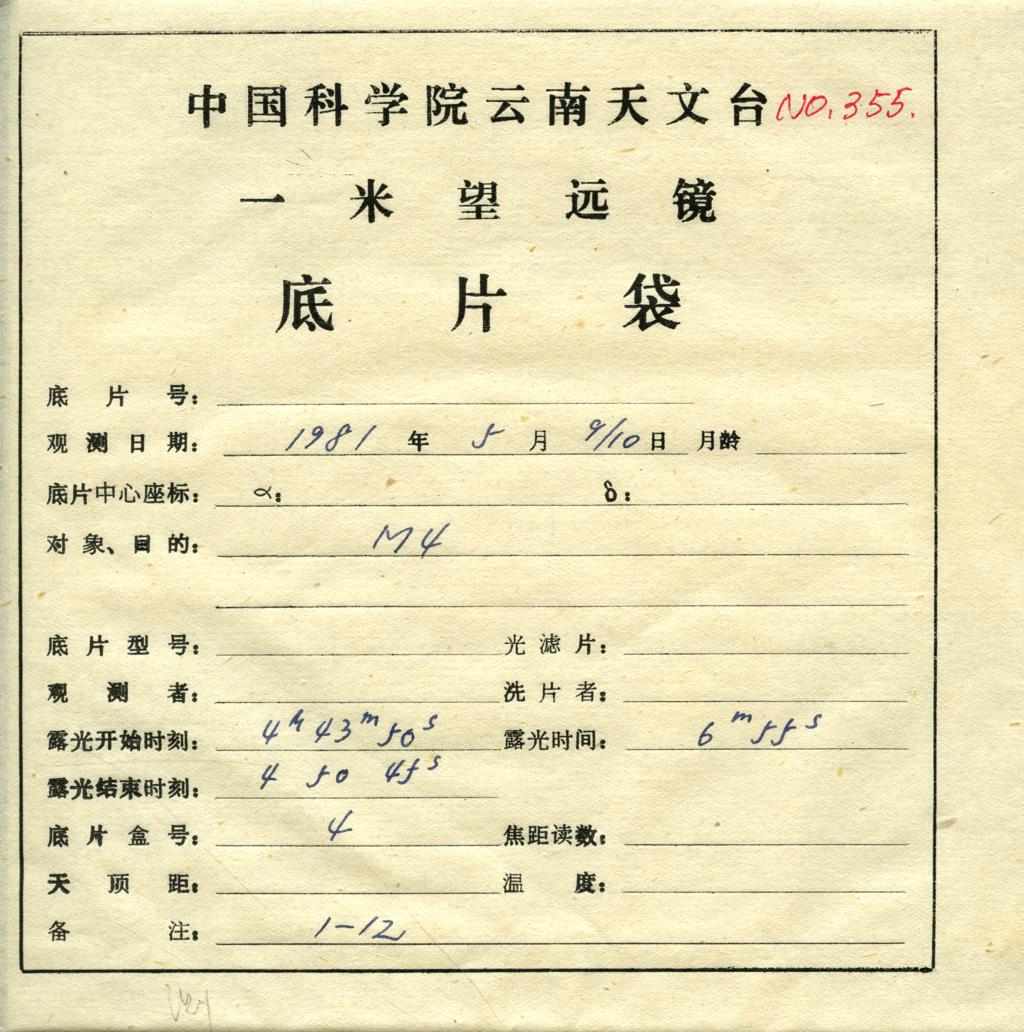 中国科学院云南天文台 NO.355.
一米望远镜
底片袋
底片号：
观测日期： 1981 年 5 月 9/10 日 月龄
底片中心座标： α： δ：
对象、目的： M4
底片型号： 光滤片：
观测者： 洗片者：
露光开始时刻： 4h 43m 50s 露光时间： 6m 55s
露光结束时刻： 4 50 45s
底片盒号： 4 焦距读数：
天顶距： 温度：
备注： 1-12